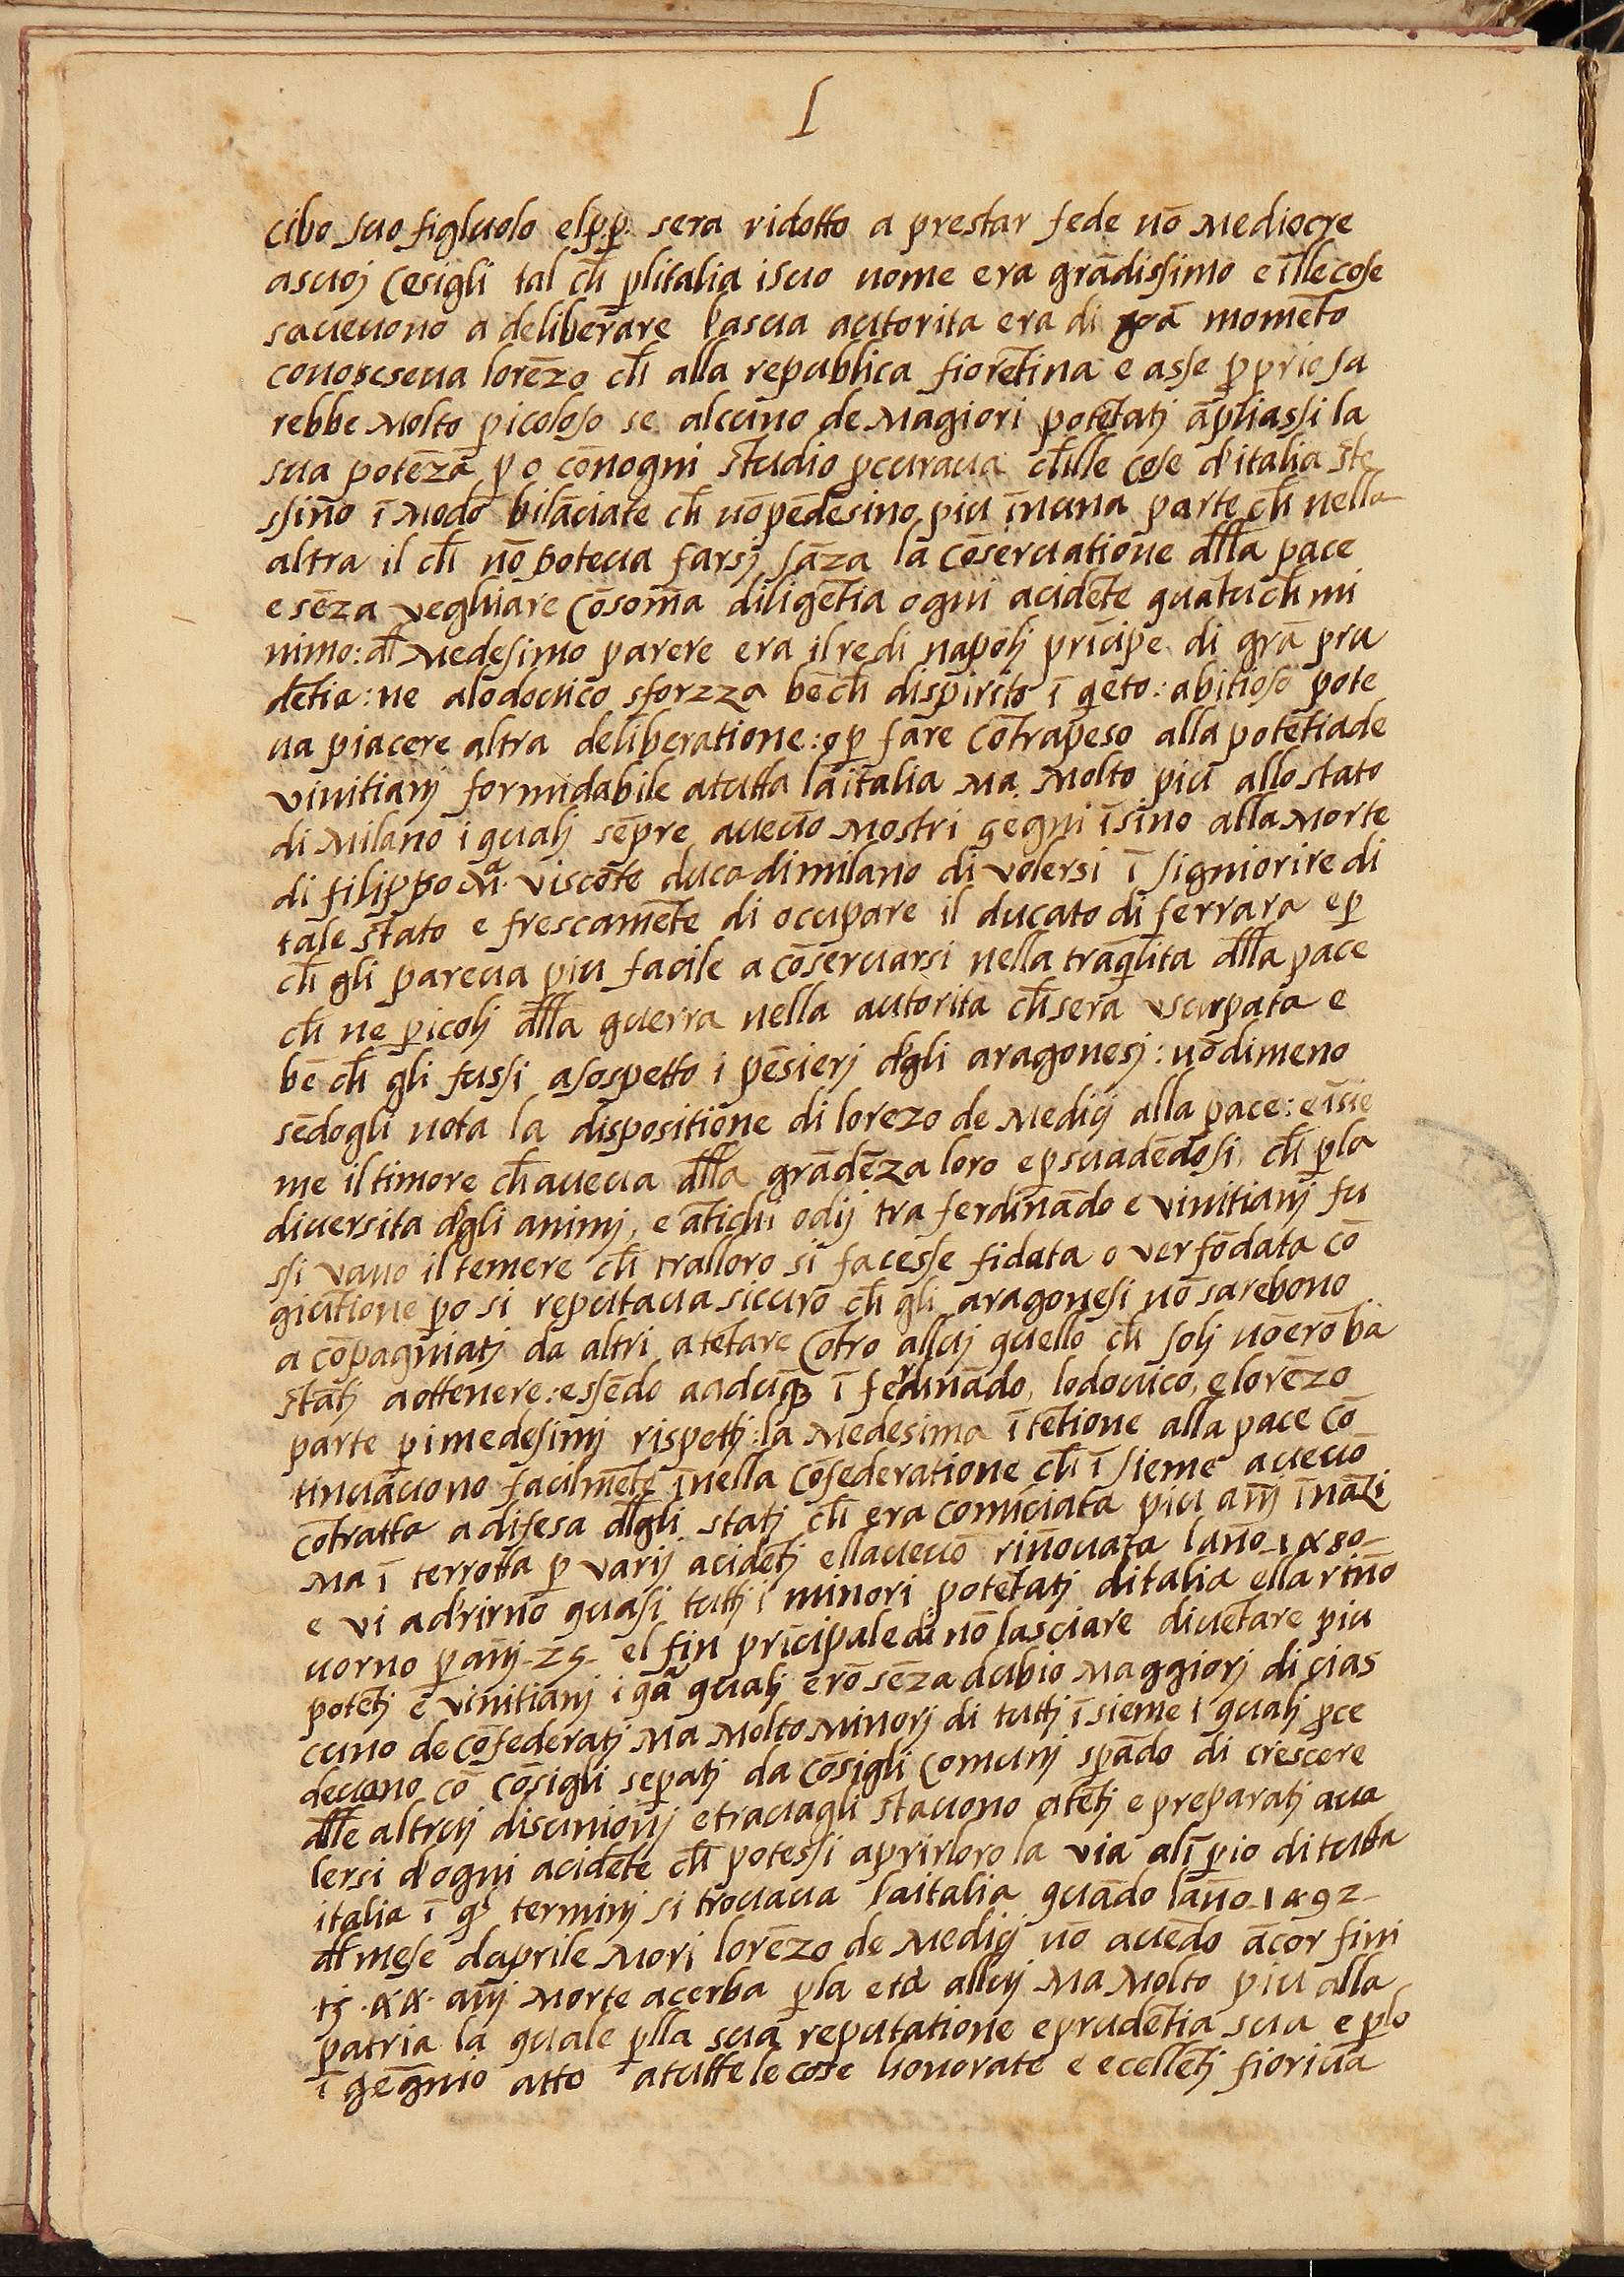 I
cibo suo figluolo el p.p. sera ridotto a prestar fede nō mediocre
asuoj cōsigli tal ch̄ p̱litalia isuo nome era grādissimo e īlle cose
saueuono a deliberare la sua autorita era di grā momēto
conoscseua lorēzo ch̄ alla republica fiorētina e asse p̱prio sa
rebbe molto p̱icoloso se alcuno de magiori potētatj āpliassi la
sua potēza p̱o cōnogni studio p̱curaua ch̄lle cose d'italia ste
ssino ī modo bilāciate ch̄ nō pēdesino piu īnuna parte ch̄ nella
altra il ch̄ nō poteua farsj sāza la cōseruatione d̄lla pace
e sēza veghiare cōsoma diligētia ogni acidēte quātuch̄ mi
nimo: d̄l medesimo parere era il re di napolj prīcipe di grā pru
dētia: ne alodouico sforzza bēch̄ dispirito ī q̱eto: abitioso pote
ua piacere altra deliberatione: o p̱ fare cōtrapeso alla potētia de
vinitianj formidabile atutta la italia ma molto piu allo stato
di milano i qualj sēpre aueuo mostri gegni īsino alla morte
di filippo mᵃ. viscōte duca dimilano di volersi ī signiorire di
tale stato e frescamēte di ocupare il ducato di ferrara e p̱
ch̄ gli pareua piu facile a cōseruarsi nella trāq̱lita d̄lla pace
ch̄ ne p̱icolj d̄lla guerra nella autorita ch̄ sera vsurpata e
bē ch̄ gli fussi asospetto i pēsierj d'gli aragonesj: nōdimeno
sēdogli nota la dispositione di lorezo de medicj alla pace: e īsie
me il timore ch̄ aueua d̄lla grādēza loro e p̱suadēdosi, ch̄ p̱la
diuersita d'gli animj, e ātichi odij tra ferdinādo e vinitianj fu
ssi vano il temere ch̄ tralloro si facesse fidata o ver fōdata cō
giūtione p̱o si reputaua sicuro ch̄ gli aragonesi nō sarebono
a cōpagniatj da altri a tētare cōtro alluj quello ch̄ solj nō erō ba
statj a ottenere: essēdo aduq̱ ī ferdinādo, lodouico, e lorēzo
parte p̱ imedesimj rispettj: la medesima ītētione alla pace cō
tinuāuono facilmēte īnella cōfederatione ch̄ ī sieme aueuō
cōtratta a difesa d̄gli statj ch̄ era comīciata piu anj īnāzi
ma ī terrotta p̱ varij acidētj ellaueuō rinouata lano 1480
e vi ad'rirno quasi tuttj i minori potētatj ditalia ella rino
uorno p̱ anj 25 el fin prīcipale di nō lasciare diuētare piu
potētj e vinitianj i qᵃ qualj erō sēza dubio maggiorj di cias
cuno de cōfederatj ma molto minorj di tuttj īsieme i qualj p̱ce
deuono cō cōsigli sep̱atj da cōsigli comunj sp̱ādo di crescere
d̄lle altruj disunionj e trauagli stauono atētj e preparatj aua
lersi d'ogni acidēte ch̄ potessi aprirloro la via alī p̱io di tutta
italia ī q̱ˢ terminj si trouaua la italia quādo lano 1492
d̄l mese daprile mori lorēzo de medicj nō auēdo ācor fini
tj .44. anj morte acerba p̱la età alluj ma molto piu alla
patria la quale p̱lla sua reputatione e prudētia sua e p̱lo
ī gēgnio atto a tutte le cose honorate e ecellētj fioriua